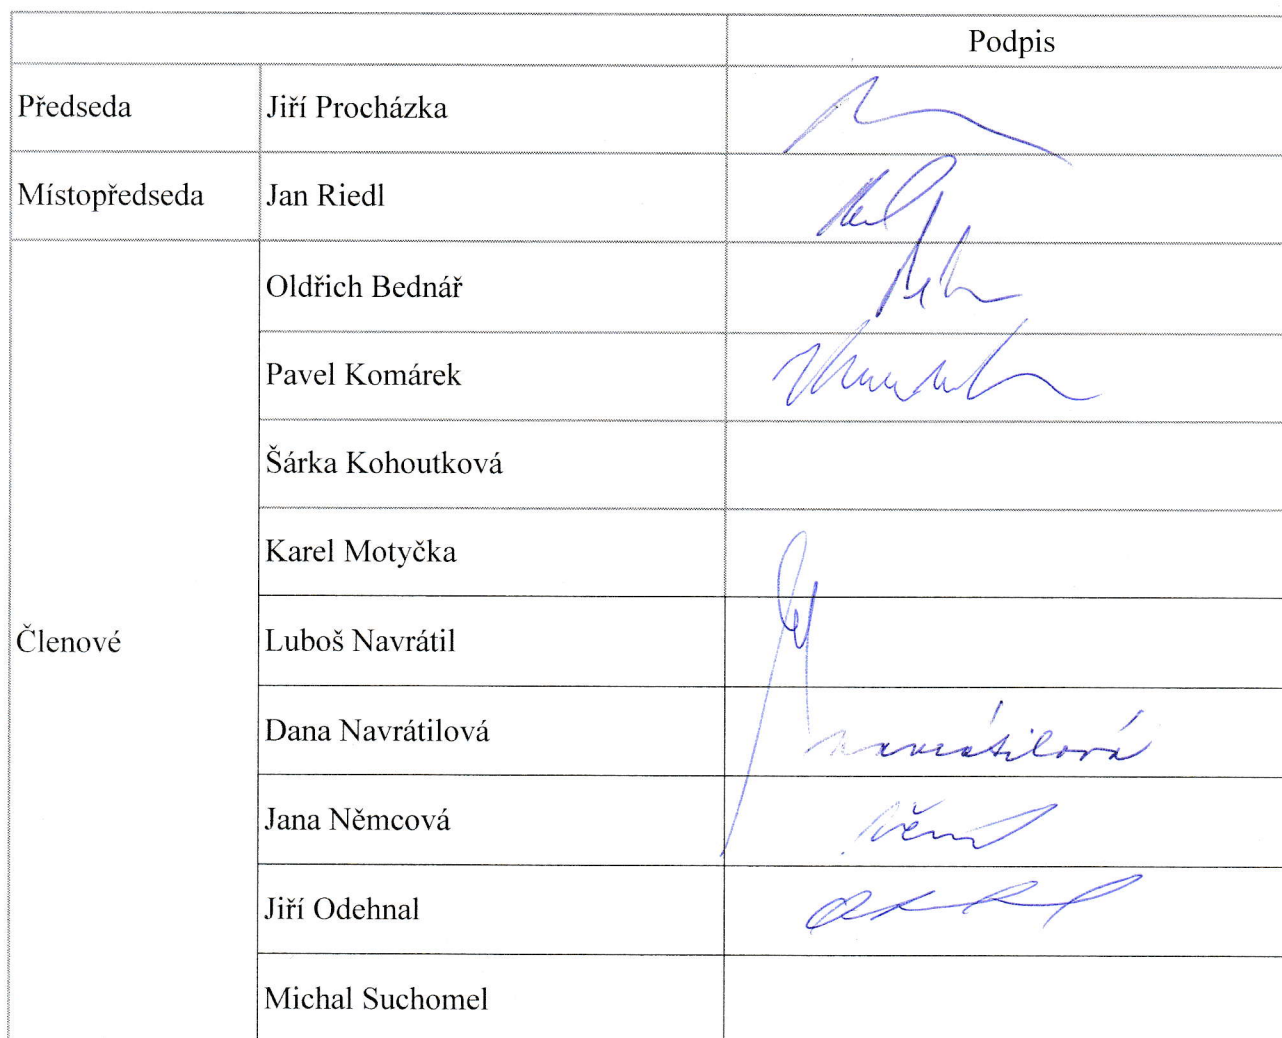 Podpis
Předseda Jiří Procházka
Místopředseda Jan Riedl
Oldřich Bednář
Pavel Komárek
Šárka Kohoutková
Karel Motyčka
Členové Luboš Navrátil
Dana Navrátilová Navrátilová
Jana Němcová
Jiří Odehnal
Michal Suchomel